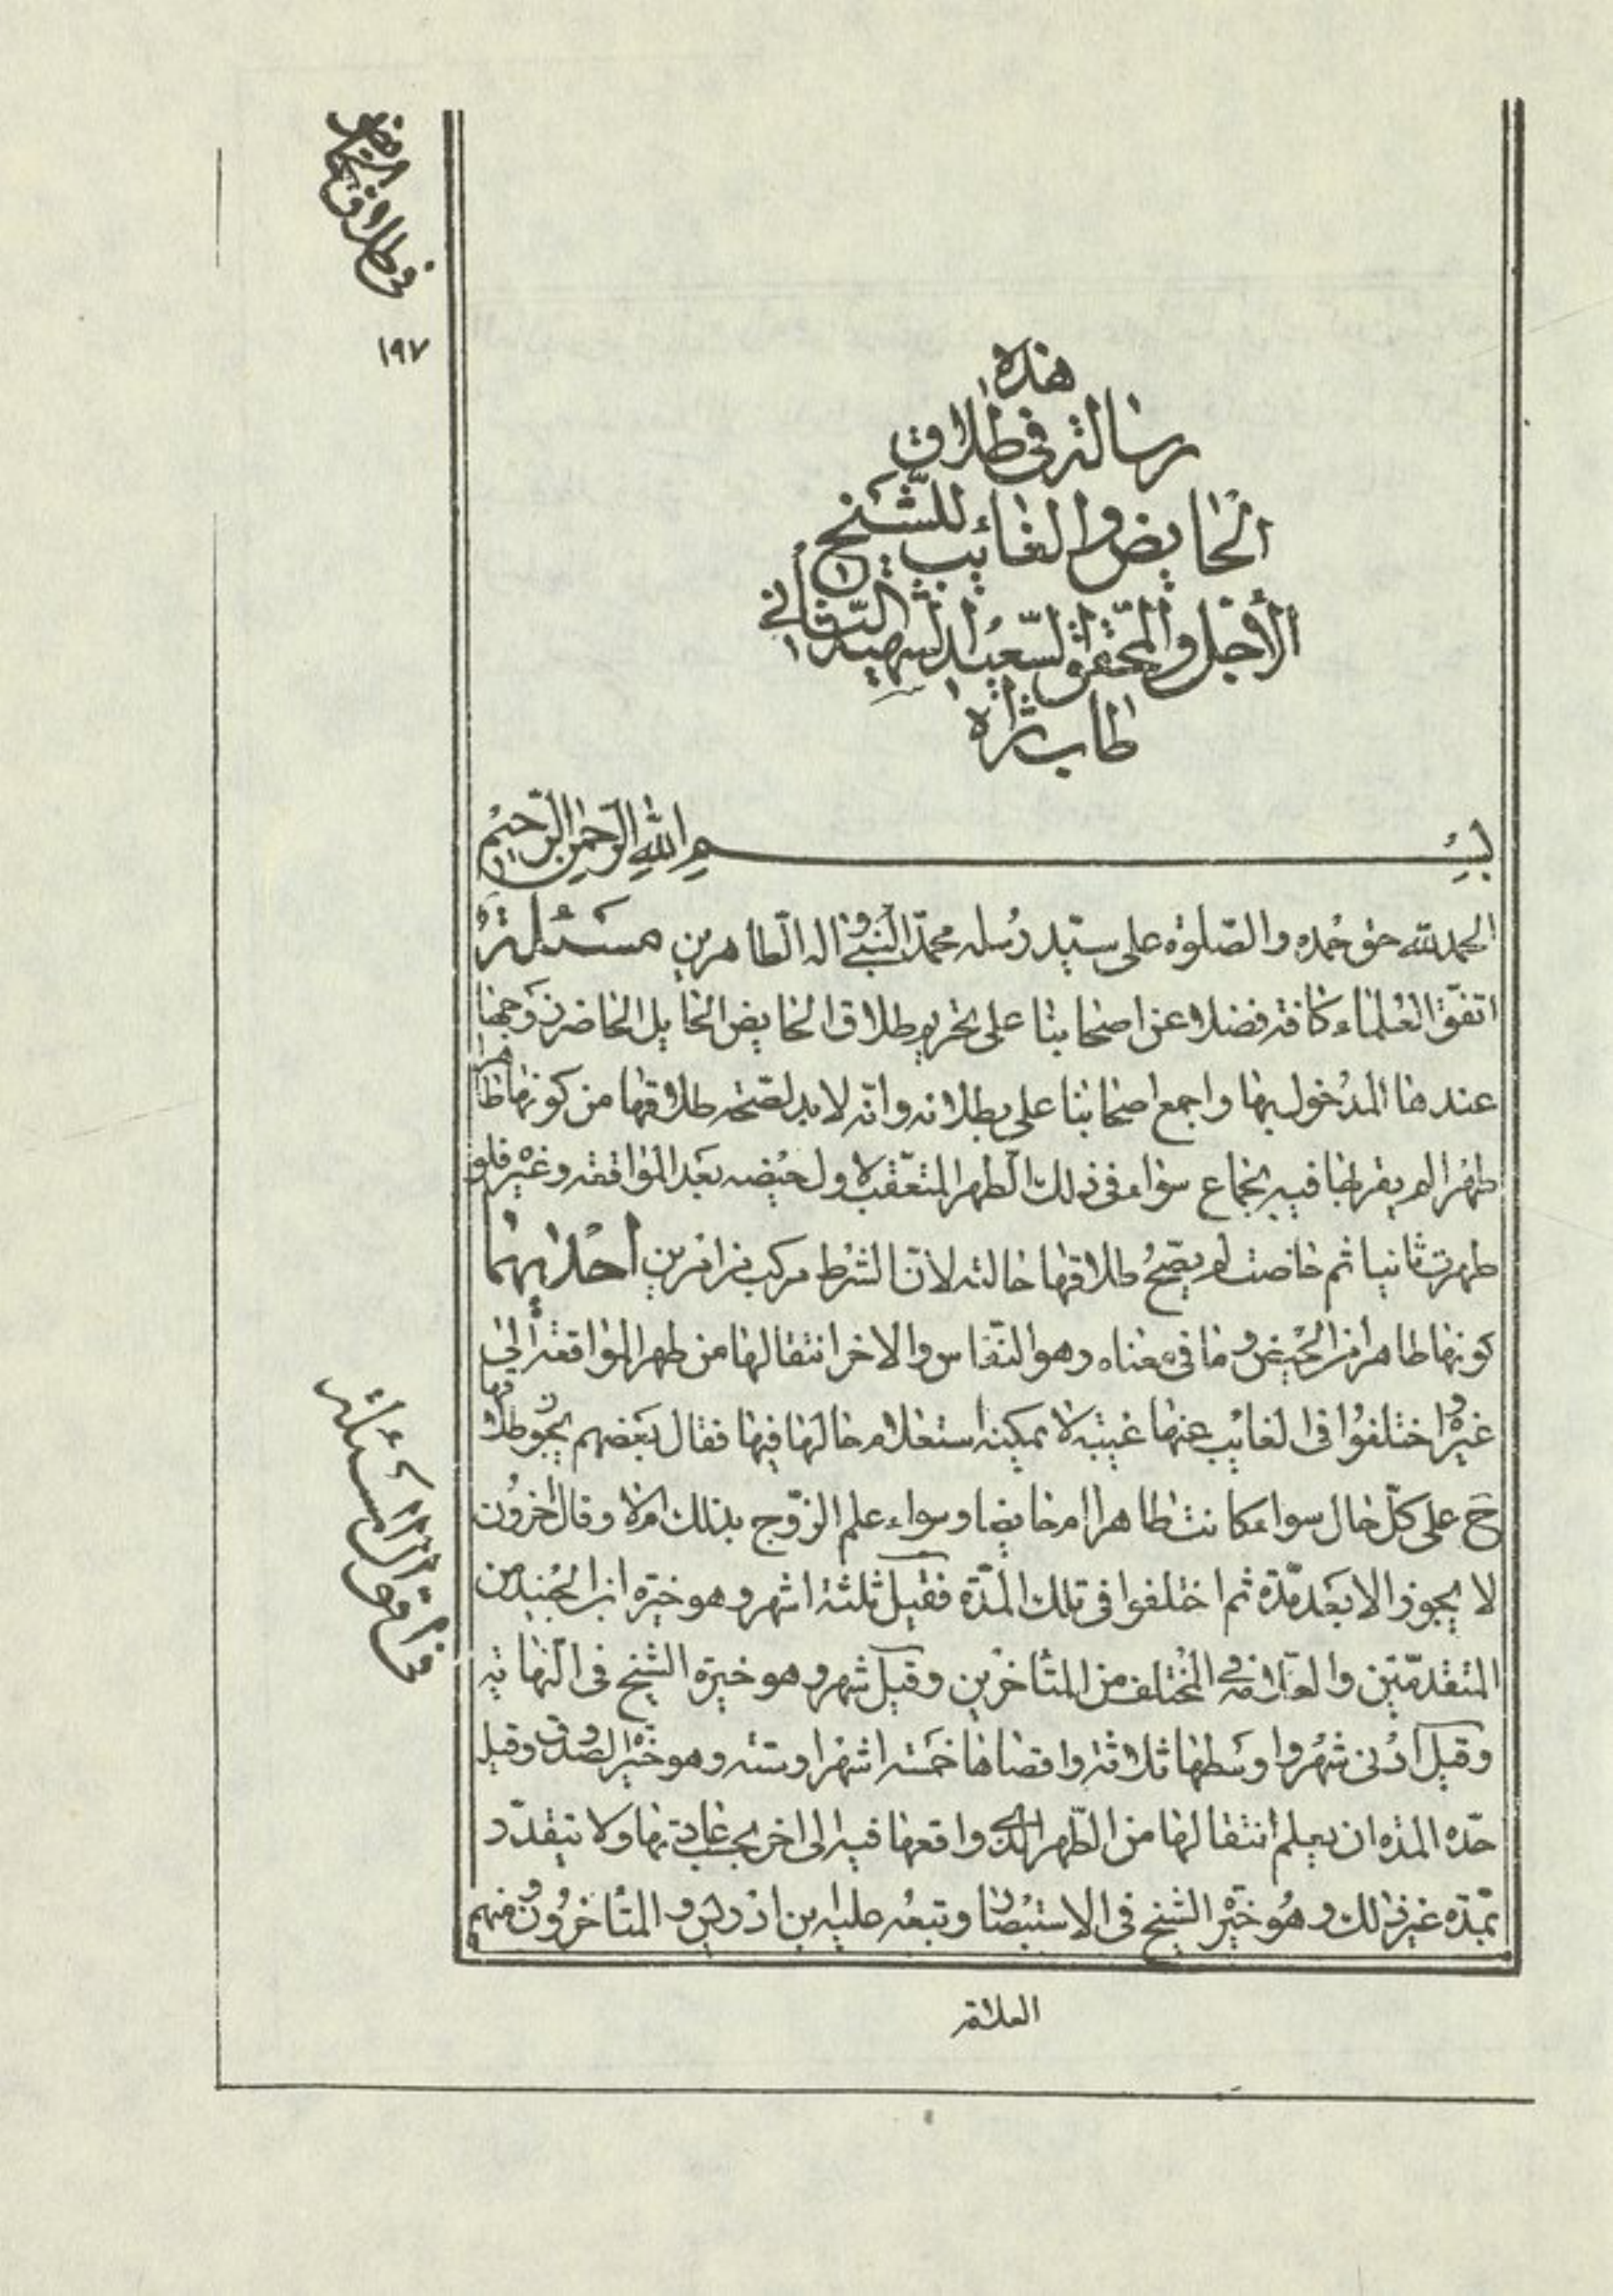 في طلاق الحائض
١٩٧
هذه
رسالة في طلاق
الحايض والغائب للشيخ
الأجل والمحقق السعيد الشهيد الثاني
طاب ثراه
بسم الله الرحمن الرحيم
الحمد لله حق حمده والصلوة على سيد رسله محمد النبي واله الطاهرين مسئلة
اتفق العلماء كافة فضلا عن اصحابنا على تحريم طلاق الحايض الحايل الحاضر زوجها
عندها المدخول بها واجمع اصحابنا على بطلانه وانه لابد لصحة طلاقها من كونها طاهرا
طهرا لم يقربها فيه بجماع سواء في ذلك الطهر المتعقب لاول حيضه بعد المواقعة وغيره فلو
طهرت ثانيا ثم حاضت لم يصح طلاقها حالته لان الشرط مركب من امرين احدهما
كونها طاهرا من الحيض وما في معناه وهو النفاس والاخر انتقالها من طهر المواقعة الى
غيره واختلفوا في الغايب عنها غيبة لا يمكنه استعلام حالها فيها فقال بعضهم يجوز طلاقها
ح على كل حال سواء كانت طاهرا ام حايضا وسواء علم الزوج بذلك ام لا وقال اخرون
لا يجوز الا بعد مدة ثم اختلفوا في تلك المدة فقيل ثلثة اشهر وهو خيرة ابن الجنيد من
المتقدمين والعلامة في المختلف من المتأخرين وقيل شهر وهو خيرة الشيخ في النهاية
وقيل ادنى شهر واوسطها ثلاثة واقصاها خمسة اشهر او ستة وهو خيرة الصدوق وقيل
حده المدة ان يعلم انتقالها من الطهر الذي واقعها فيه الى اخر بحسب عادتها ولا يتقدر
بمدة غير ذلك وهو خيرة الشيخ في الاستبصار وتبعه عليه بن ادريس والمتأخرون منهم
العلامة